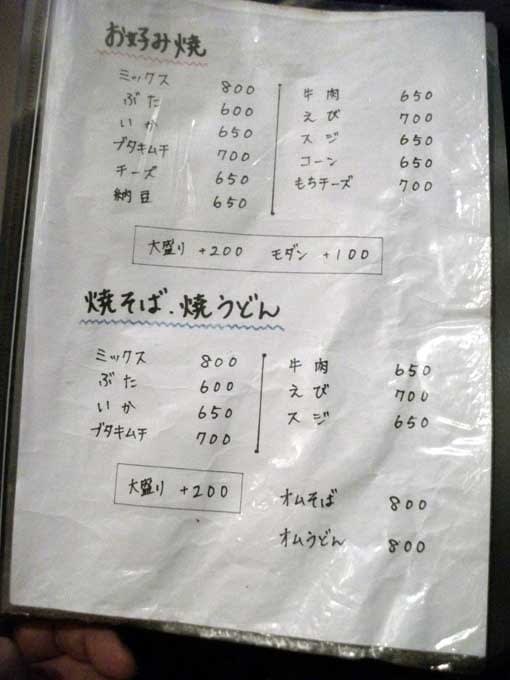 お好み焼
ミックス 800
ぶた 600
いか 650
ブタキムチ 700
チーズ 650
納豆 650
牛肉 650
えび 700
スジ 650
コーン 650
もちチーズ 700
大盛り +200 モダン +100
焼そば.焼うどん
ミックス 800
ぶた 600
いか 650
ブタキムチ 700
牛肉 650
えび 700
スジ 650
大盛り +200
オムそば 800
オムうどん 800